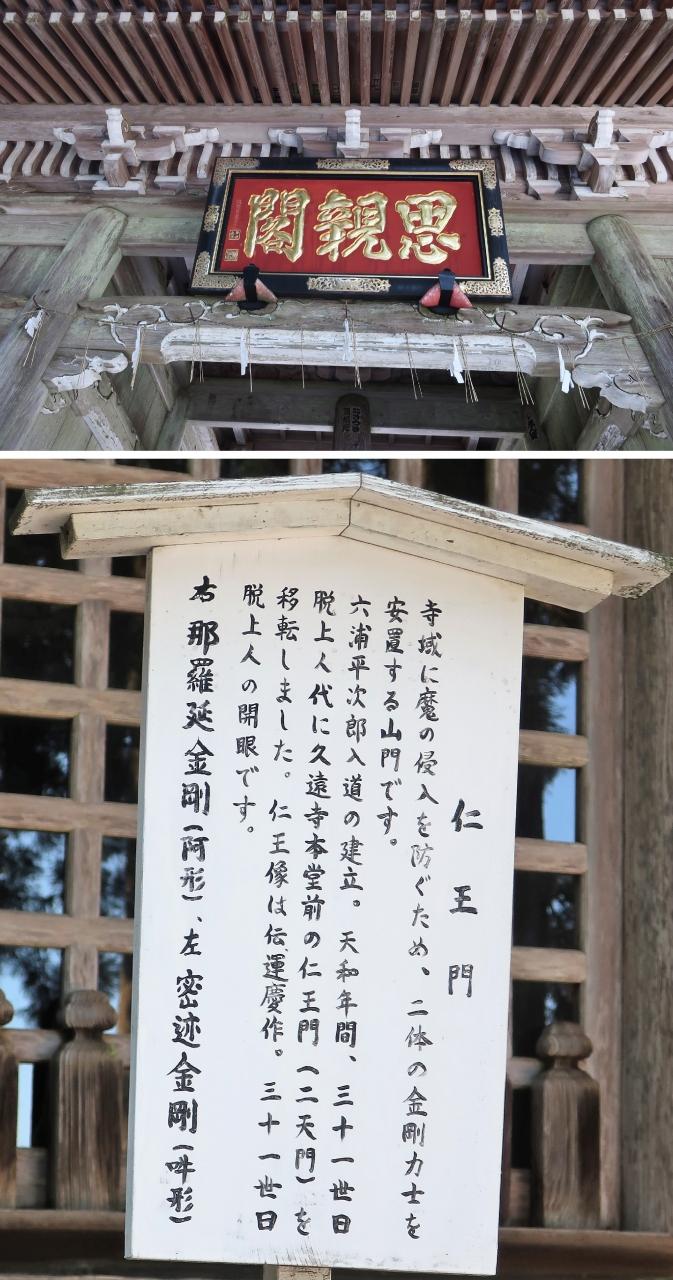 思親閣
仁王門
寺域に魔の侵入を防ぐため、二体の金剛力士を
安置する山門です。
六浦平次郎入道の建立。天和年間、三十一世日
脱上人代に久遠寺本堂前の仁王門(二天門)を
移転しました。仁王像は伝、運慶作。三十一世日
脱上人の開眼です。
右那羅延金剛(阿形)、左密迹金剛(吽形)